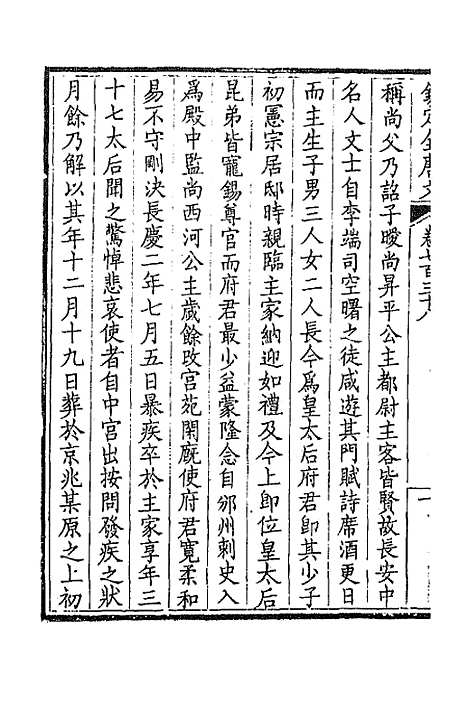 欽定全唐文 卷七百三十八
稱尚父乃詔子曖尚昇平公主都尉主客皆賢故長安中
名人文士自李端司空曙之徒咸遊其門賦詩席酒更日
而主生子男三人女二人長今爲皇太后府君卽其少子
初憲宗居邸時親臨主家納迎如禮及今上卽位皇太后
昆弟皆寵錫尊官而府君最少益蒙隆念自邠州刺史入
爲殿中監尚西河公主歲餘改宫苑閑廐使府君寛柔和
易不守剛決長慶二年七月五日暴疾卒於主家享年三
十七太后聞之驚悼悲哀使者自中宫出按問發疾之狀
月餘乃解以其年十二月十九日葬於京兆某原之上初